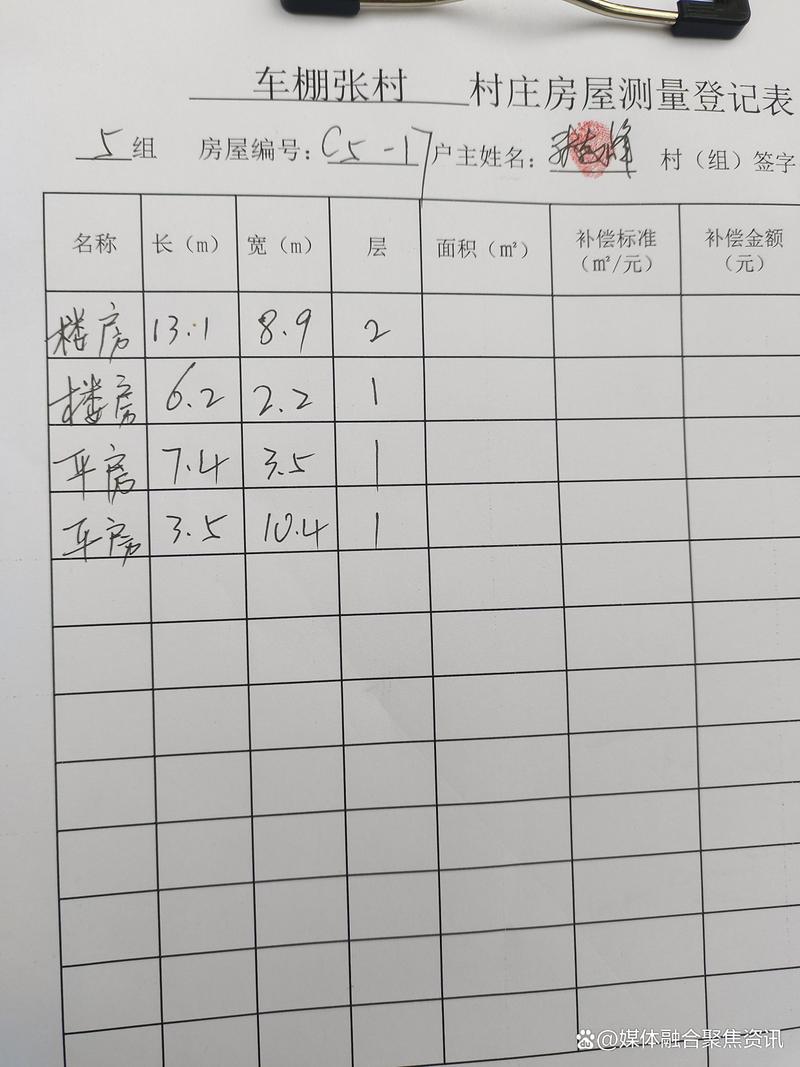 车棚张村 村庄房屋测量登记表
5组 房屋编号：C5-17 户主姓名： 村（组）签字
名称 长（m） 宽（m） 层 面积（㎡） 补偿标准（㎡/元） 补偿金额（元）
楼房 13.1 8.9 2
楼房 6.2 2.2 1
平房 7.4 3.5 1
平房 3.5 10.4 1
Bai du @媒体融合聚焦资讯